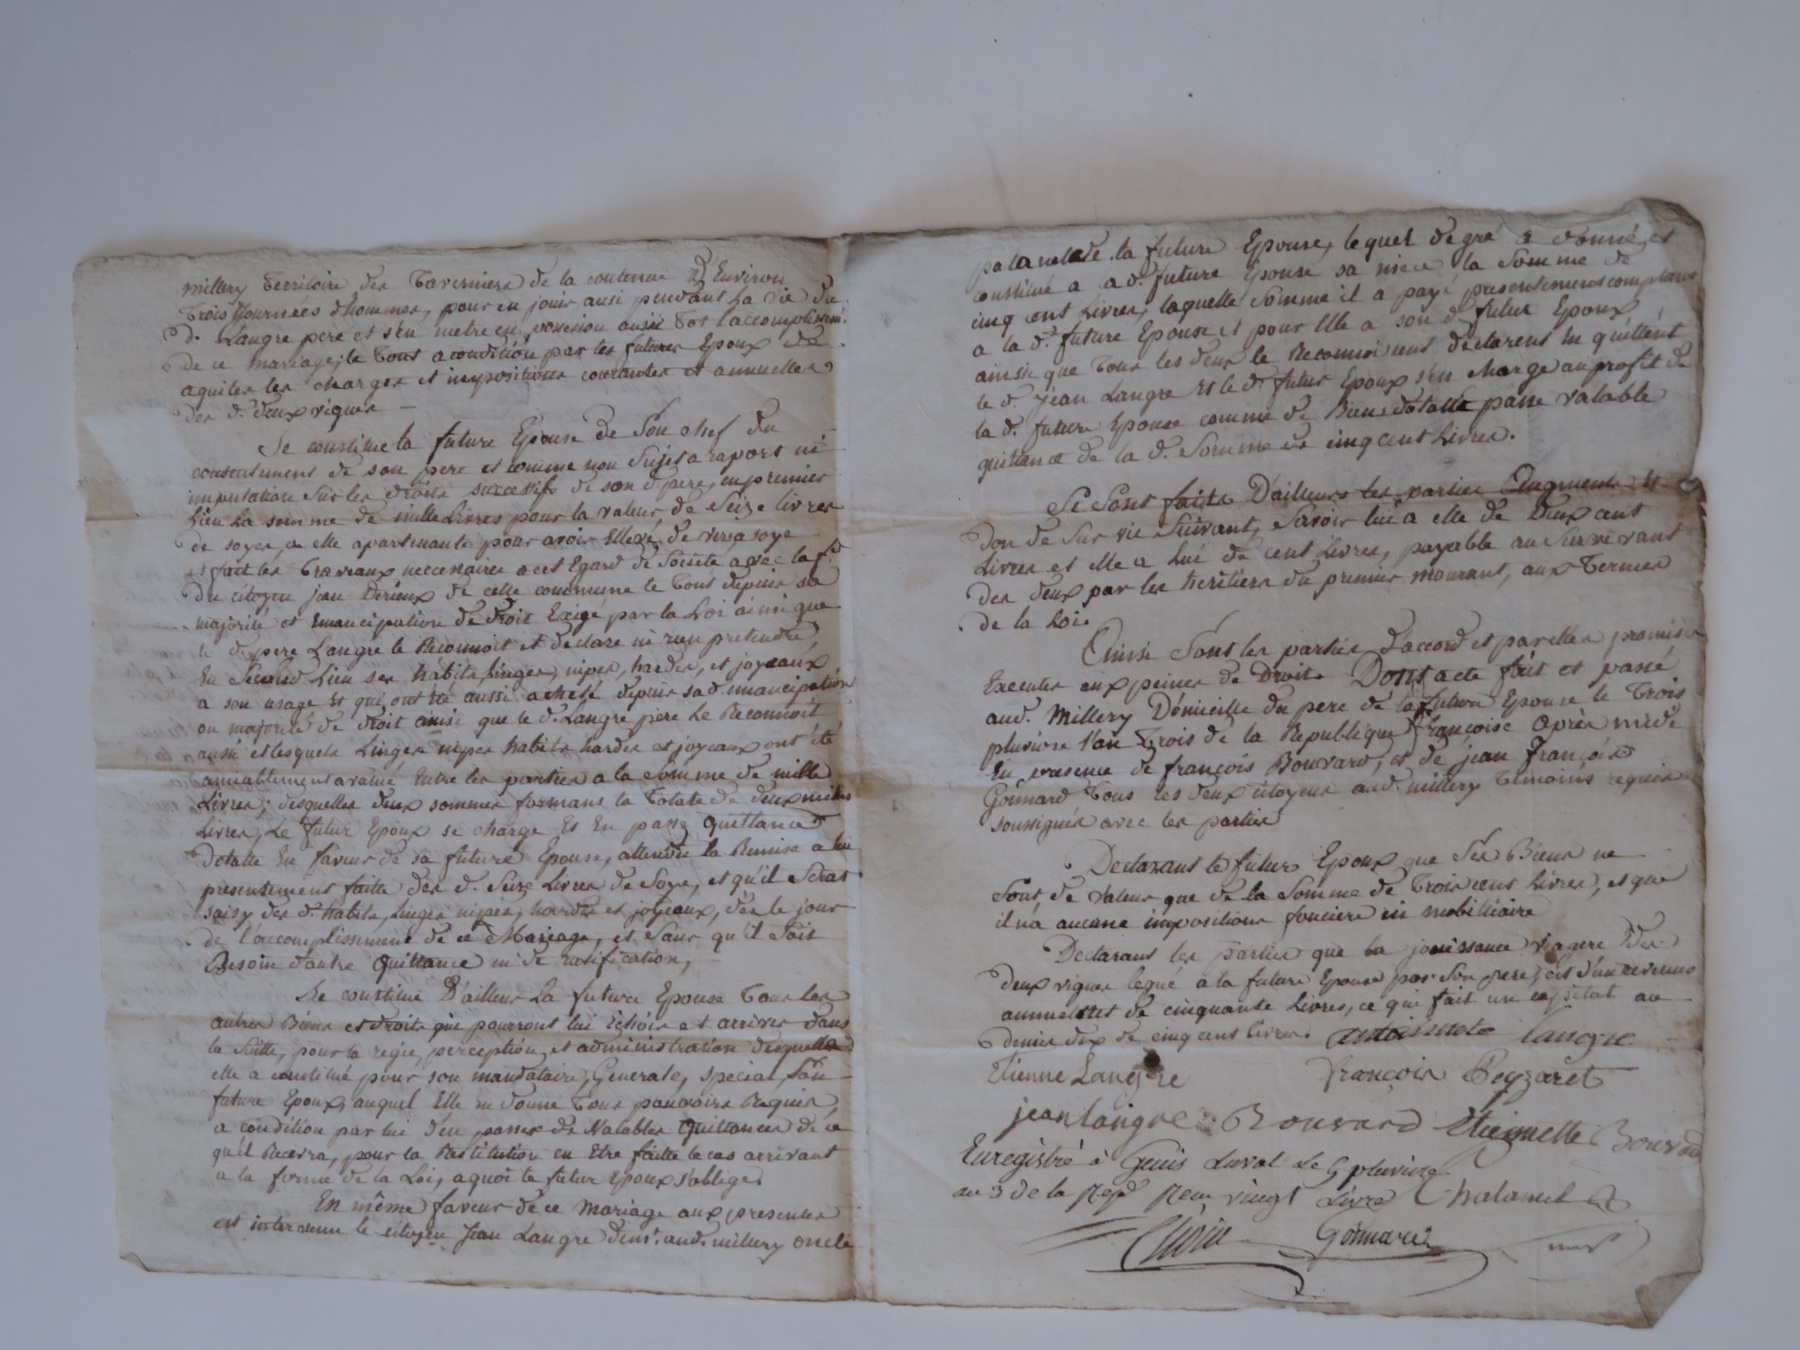 millery Territoire des Taverniers de la contenue d'Environ
Trois Journées d'hommes, pour en jouir ausi pendant la vie du
d. Langre pere et s'en metre en possession aussi tot l'accomplissemt.
de ce mariage; le Tout a condition par les futurs Epoux de
aquiter les charges et impositions courantes et annuelles
des d. deux vignes
Se constitue la future Epouse de Son chef du
consentement de son pere et comme non Sujet a raport ni
imputation Sur les droits successifs de son d. pere, en premier
Lieu La somme de mille Livres pour la valeur de Seize livres
de soyes, a elle apartenante pour avoir Elevé de vers a soye
et fait les Travaux neccessaires a cet Egard de Societé avec la f.
du citoyen jean Derieux de cette commune le Tout depuis sa
majorité et Emancipation de droit Exigé par la Loi ainsi que
le d. pere Langre le Reconnoit et declare ni rien pretendre,
En Second Lieu ses habits, linges, nipes, hardes, et joyeaux
a son usage Et qui ont été aussi acheté depuis sa d. emancipation
ou majorité de droit ainsi que le d. Langre pere Le Reconnoit
aussi et lesquels Linges nipes habits hardes et joyeaux ont été
amiablement avalué Entre les parties a la somme de mille
Livres; desquelles deux sommes formans la Totale de deux milles
Livres, Le futur Epoux se charge Et En passe Quittance
dotalle En faveur de sa future Epouse, attendu la Remise a lui
presentement faitte des d. Seize Livres de Soye, et qu'il Serat
saisy des d. habits, linges nipes, hardes et joyeaux, dès le jour
de l'accomplissement de ce Mariage, et Sans qu'il Soit
Besoin d'autre Quittance ni de ratification,
Se constitue D'ailleur La future Epouse Tous les
autres Biens et droits qui pourront lui Echoir et arriver dans
la Suitte, pour la regie, perception, et administration desquelles
elle a constitué pour son mandataire, Generale, special, Son
future Epoux, auquel Elle en donne Tous pouvoirs Requis
a condition par lui d'en passer de Valables Quittances de ce
qu'il Recevra, pour la Restitution en Etre faitte le cas arrivant
a la forme de la Loi, a quoi le futur Epoux s'oblige
En même faveur de ce Mariage aux presentes
est intervenu le citoyen Jean Langre demt. aud. millery oncle
paternel de la future Epouse, lequel de gré a donné, et
constitué a la d. future Epouse sa niece la Somme de
cinq cent Livres, laquelle Somme il a payé presentement comptant
a la d. future Epouse et pour Elle a son d. futur Epoux
ainsie que Tous les deux le Reconnoissent declarent En quittent
le d. jean Langre Et le d. futur Epoux s'En charge au profit de
la d. future Epouse comme de Biens dotalle passe valable
quittance de la d. Somme de cinq cent Livres.
Se Sont faits D'ailleurs les parties Augments Et
Don de Survie Suivant, Savoir lui a elle de Deux cent
Livres et elle a Lui de cent Livres, payable au Survivant
des deux par les heritiers du premier mourant, aux Termes
de la Loi.
Ainsi Sont les parties d'accord et par elles promis
Executer aux peines de Droit. Dont acte fait et passé
aud. Millery Domicille du pere de la future Epouse le Trois
pluviose l'an Trois de la Republique françoise après midi
En presence de françois Bouvard, et de jean françois
Gonnard Tous les deux citoyens aud. millery Temoins requis
soussignés avec les parties
Declarant le futur Epoux que Ses Biens ne
Sont de valeur que de la Somme de Trois cent Livres, et que
il n'a aucune impositions fonciere ni mobilliaire
Declarans les parties que la jouissance viagere des
deux vignes legué à la future Epouse par Son pere, est d'un revenus
annuelles de cinquante Livres, ce qui fait un capital au
denier dix de cinq cent livres. antoinnete Langre
Etienne Langre françois Peyzaret
jean langre Bouvard Etiennette Bouvard
Enregistré à Genis Laval Le 9 pluviose
an 3 de la Repe Reçu vingt Livre Chalamel
Gonnard